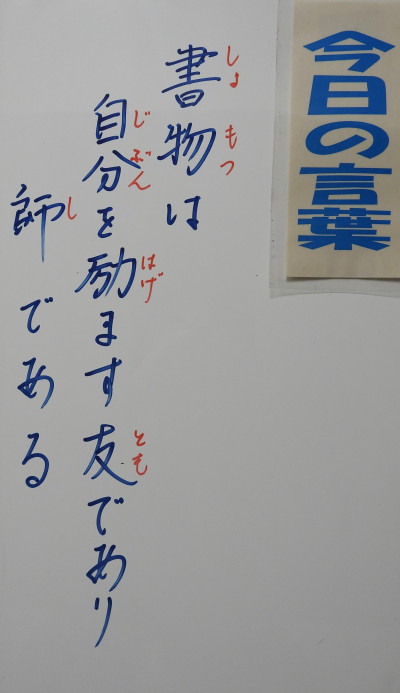 今日の言葉
書物は
しょ もつ
自分を励ます友であり
じ ぶん はげ とも
師である
し